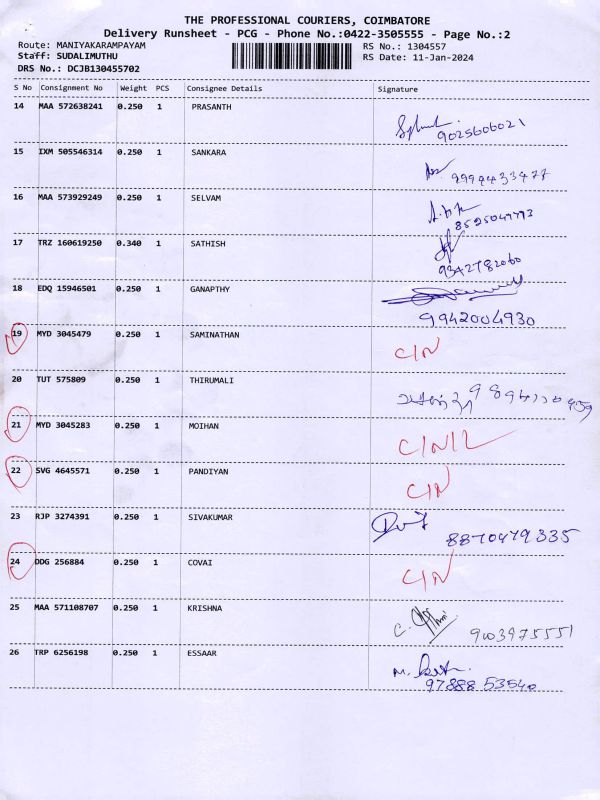 THE PROFESSIONAL COURIERS, COIMBATORE
Delivery Runsheet - PCG - Phone No.:0422-3505555 - Page No.:2
Route: MANIYAKARAMPAYAM RS No.: 1304557
Staff: SUDALIMUTHU RS Date: 11-Jan-2024
DRS No.: DCJB130455702
S No Consignment No Weight PCS Consignee Details Signature
14 MAA 572638241 0.250 1 PRASANTH
9025606021
15 IXM 505546314 0.250 1 SANKARA
9994433477
16 MAA 573929249 0.250 1 SELVAM
17 TRZ 160619250 0.340 1 SATHISH
9342782060
18 EDQ 15946501 0.250 1 GANAPTHY
9942004930
19 MYD 3045479 0.250 1 SAMINATHAN
C/N
20 TUT 575809 0.250 1 THIRUMALI
21 MYD 3045283 0.250 1 MOIHAN
22 SVG 4645571 0.250 1 PANDIYAN
C/N
23 RJP 3274391 0.250 1 SIVAKUMAR
8870479335
24 DDG 256884 0.250 1 COVAI
C/N
25 MAA 571108707 0.250 1 KRISHNA
9003975551
26 TRP 6256198 0.250 1 ESSAAR
97888 53540